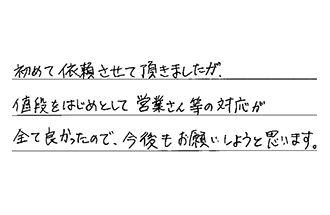 初めて依頼させて頂きましたが、
値段をはじめとして営業さん等の対応が
全て良かったので、今後もお願いしようと思います。